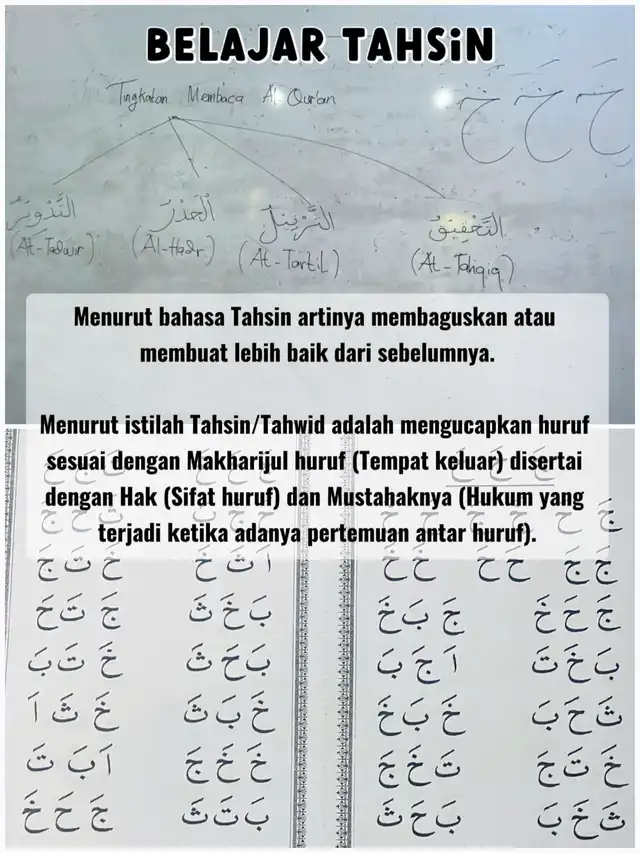 BELAJAR TAHSiN
Tingkatan Membaca Al Qur'an
التَّدْوِيْرُ الْحَدْرُ التَّرْتِيْلُ التَّحْقِيْقُ
(At-Tadwir) (Al-Hadr) (At-Tartil) (At-Tahqiq)
Menurut bahasa Tahsin artinya membaguskan atau
membuat lebih baik dari sebelumnya.
Menurut istilah Tahsin/Tahwid adalah mengucapkan huruf
sesuai dengan Makharijul huruf (Tempat keluar) disertai
dengan Hak (Sifat huruf) dan Mustahaknya (Hukum yang
terjadi ketika adanya pertemuan antar huruf).
جَ حَ خَ جَ بَ خَ بَ خَ ثَ جَ تَ حَ
بَ خَ تَ اَ جَ بَ بَ حَ ثَ خَ تَ بَ
ثَ حَ بَ خَ بَ خَ خَ بَ ثَ خَ ثَ اَ
خَ تَ جَ تَ خَ جَ خَ خَ جَ اَ بَ تَ
ثَ خَ بَ بَ حَ ثَ بَ تَ ثَ جَ حَ خَ